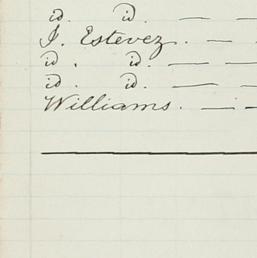 id. id. — —
J. Estevez. — —
id. id. — —
id. id. — —
Williams. — —